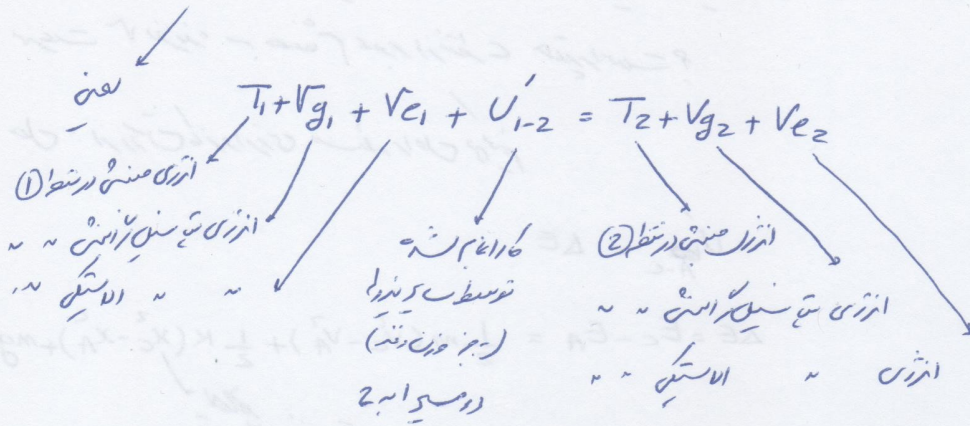 یعنی
T₁ + Vg₁ + Ve₁ + U′₁₋₂ = T₂ + Vg₂ + Ve₂
انرژی جنبشی در نقطه ①
انرژی پتانسیل گرانشی 〃 〃
〃 〃 الاستیکی 〃 〃
کار انجام شده
توسط سایر نیروها
(بجز وزن و فنر)
در مسیر 1 به 2
انرژی جنبشی در نقطه ②
انرژی پتانسیل گرانشی 〃 〃
انرژی 〃 الاستیکی 〃 〃